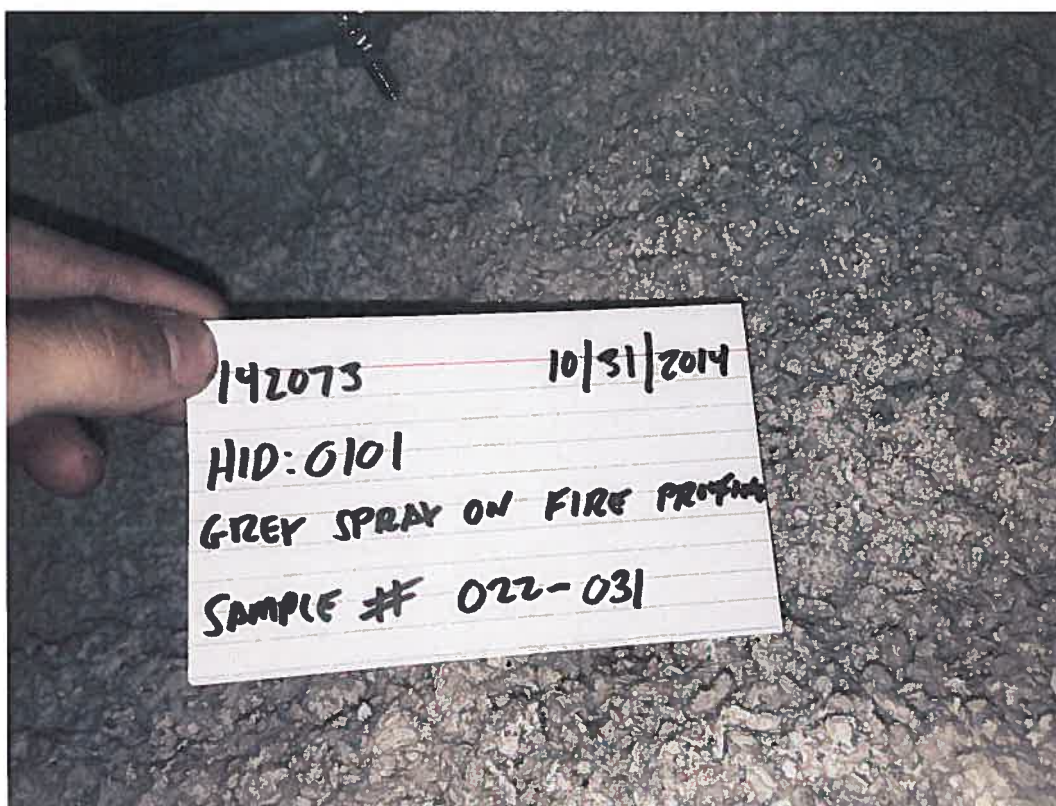 142073 10/31/2014
HID: 0101
GREY SPRAY ON FIRE
SAMPLE # 022-031